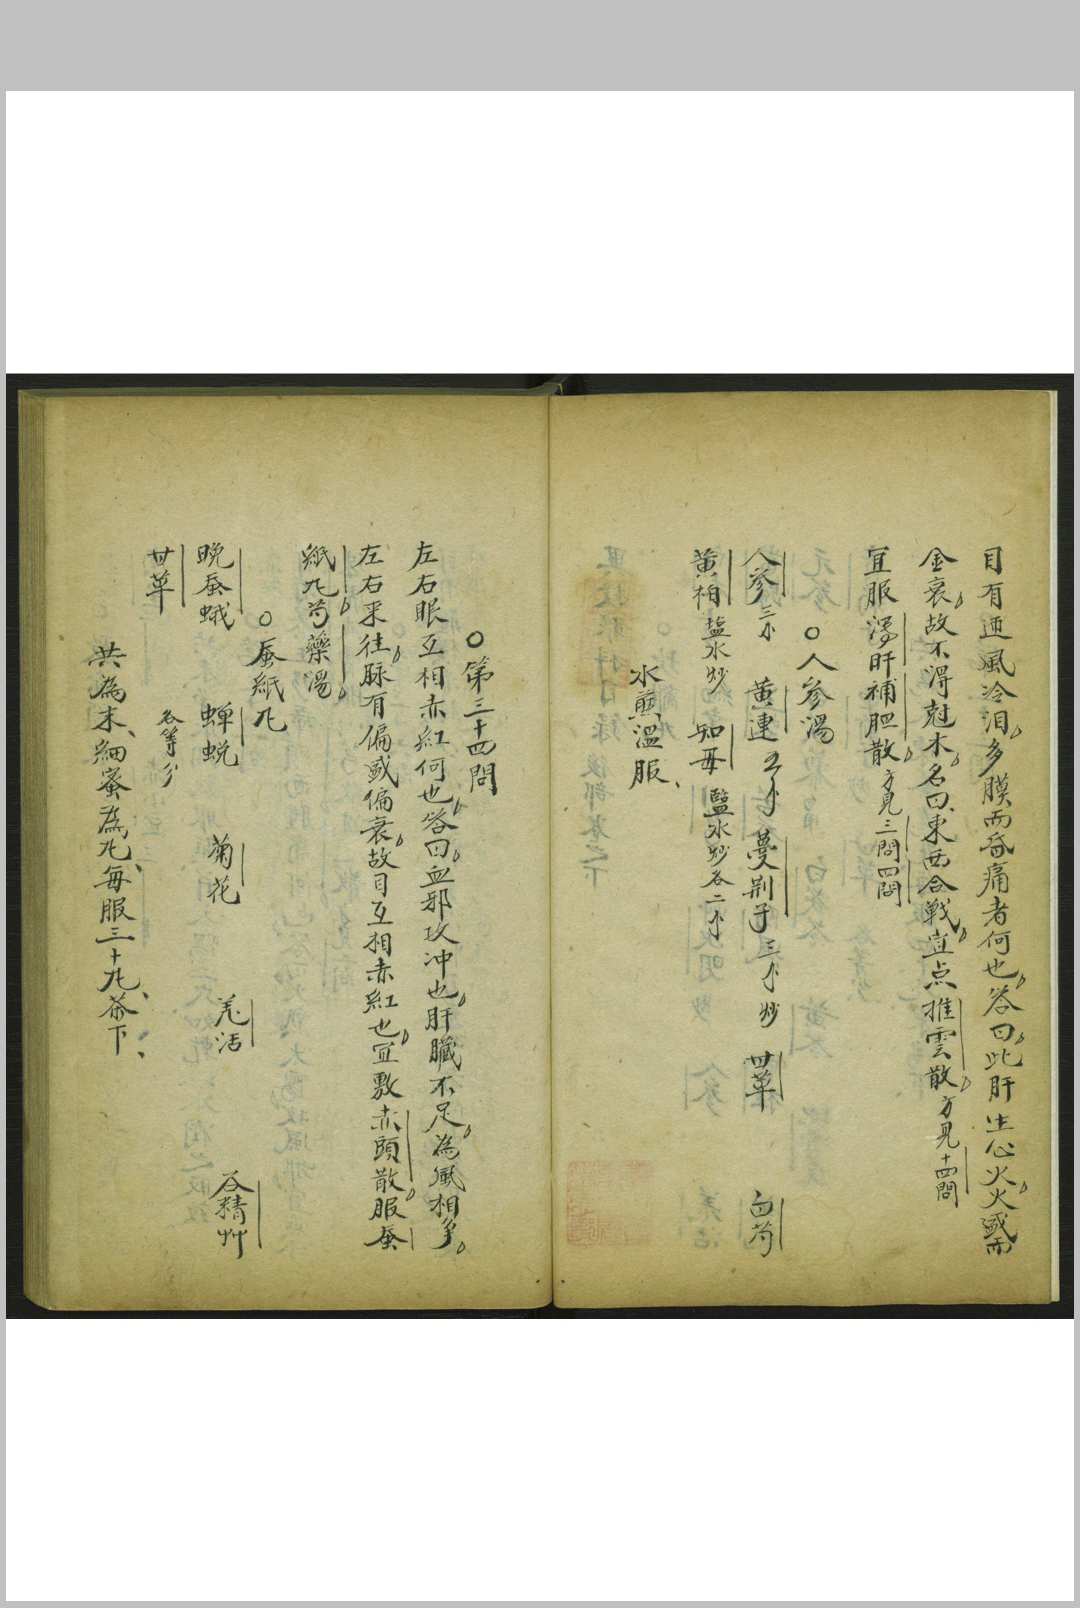 目有迎風冷泪多膜而昏痛者何也答曰此肝生心火火盛而
金衰故不淂尅木名曰東西合戦宜点推雲散方見十四問
宜服瀉肝補胆散方見三問四問
○人参湯
人参三小 黄連二小 蔓荆子三小炒 甘草 白芍
黄柏塩水炒 知毋鹽水炒各二小
水煎溫服
○第三十四問
左右眼互相赤紅何也答曰血邪攻冲也肝臓不足為風相爭
左右来往脉有偏盛偏衰故目互相赤紅也宜敷赤頭散服蚕
紙九芎藥湯
○蚕紙九
晚蚕蛾 蟬蛻 菊花 羌活 谷精艸
甘草 各等分
共為末細蜜為九每服三十九茶下